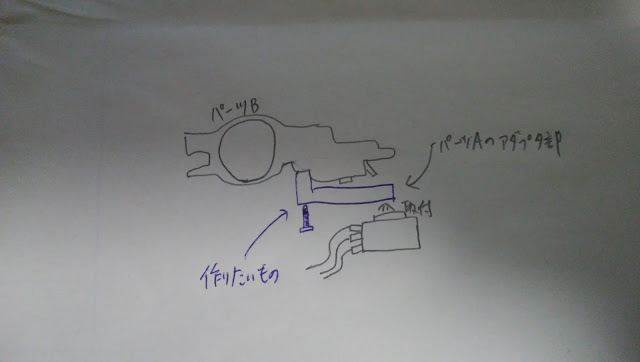 パーツB
パーツAのアダプタ部
取付
作りたいもの